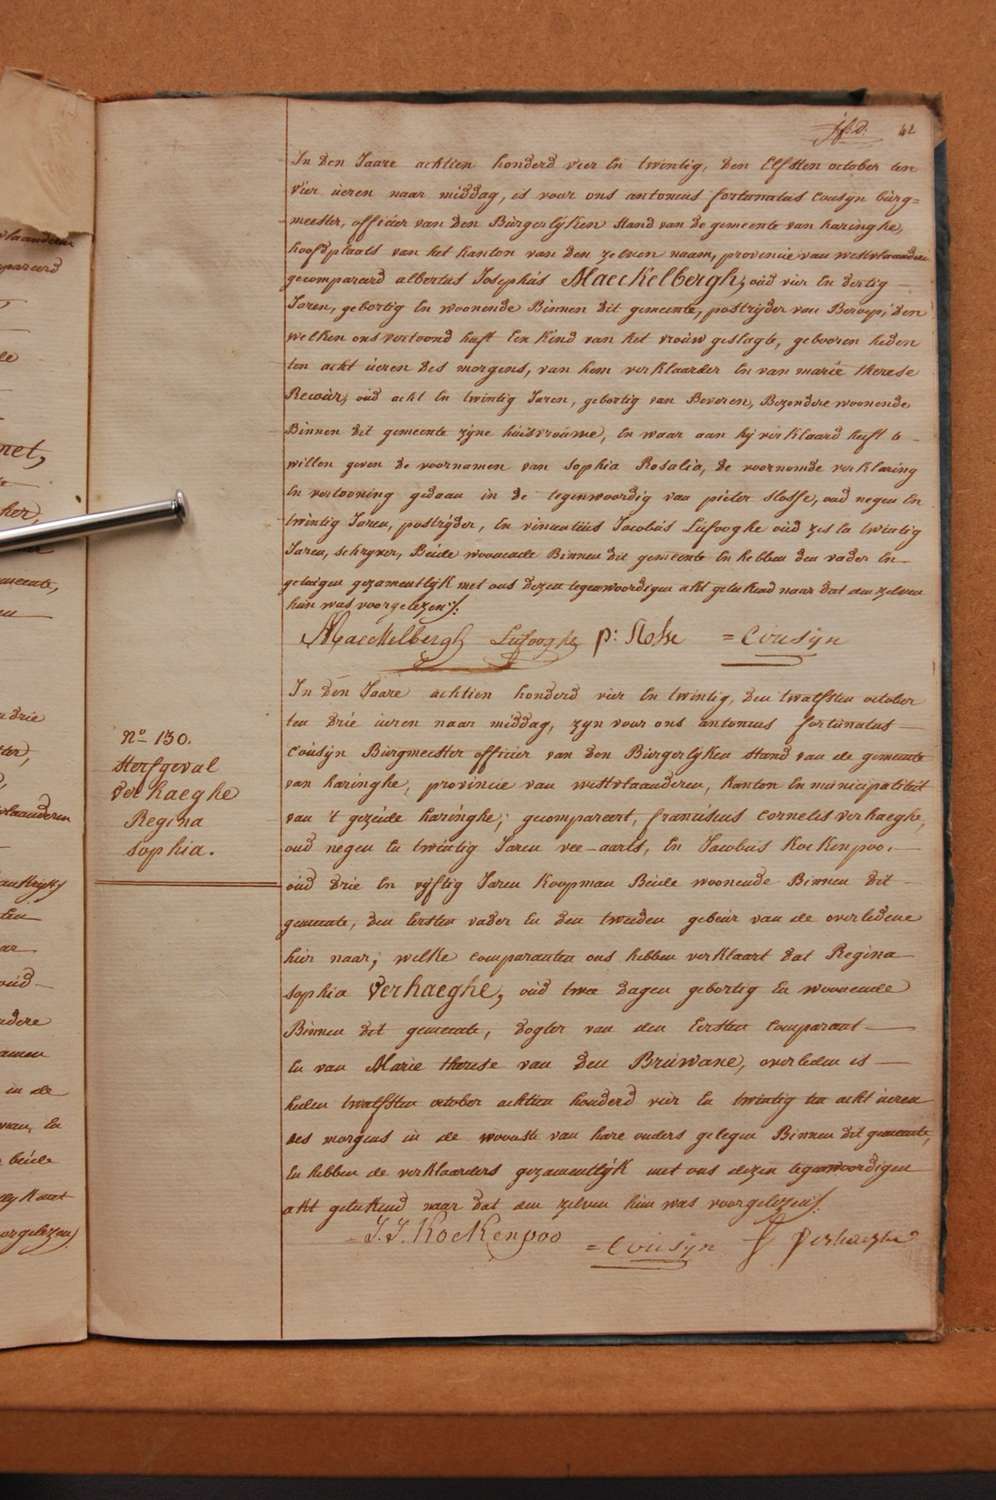 42
In den Jaare achtien honderd vier en twintig, den Elfsten october ten
vier ueren naar middag, is voor ons antonius fortunatus Cousyn bùrg=
meester, officier van den Bùrgerlyken Stand van de gemeente van haringhe,
hoofdplaats van het kanton van den zelven naam, provincie van westvlaanderen
gecompareerd albertus Josephùs Maeckelbergh, oùd vier en dertig
Jaren, gebortig en woonende Binnen dit gemeente, postryder van Beroep, den
welken ons vertoond heeft Een kind van het vroùwgeslagte, gebooren heden
ten acht ùeren des morgens, van hem verklaarder En van marie therese
Recoùr, oùd acht En twintig Jaren, gebortig van Beveren, Bezondere woonende
Binnen dit gemeente zyne hùisvroùwe, En waar aan hij verklaard heeft te
willen geven de voornamen van Sophia Rosalia, de voornemde verklaring
En vertooning gedaan in de tegenwoordig van pieter Slosse, oud negen En
twintig Jaren, postrÿder, En vincentiùs Jacobùs Lafooghe oùd zes En twintig
Jaren, schryner, Beide woonende Binnen dit gemeente En hebben den vader En
getuigen gezamentlÿk met ons dezen tegenwoordigen akt geteekend naar dat den zelven
hùn was voorgelezen/.
Maeckelbergh Lafooghe p: Slosse = Cousÿn
N° 130.
Sterfgeval
Verhaeghe
Regina
Sophia.
In den Jaare achtien honderd vier En twintig, den twalfsten october
ten drie ueren naar middag, zyn voor ons antonius fortùnatus
Coùsÿn Bùrgmeester officier van den Bùrgerlÿken stand van de gemeente
van haringhe, provincie van westvlaanderen, kanton En municipaliteit
van 't gezeide haringhe; gecompareert, franciscus Cornelis verhaeghe,
oud negen En twintig Jaren vee-aarts, En Jacobus Kockenpoo,
oùd drie En vyftig Jaren koopman Beide woonende Binnen dit
gemeente, den Eersten vader En den tweeden gebeùr van de overledene
hier naar; welke comparanten ons hebben verklaart dat Regina
Sophia Verhaeghe, oùd twee dagen gebortig En woonende
Binnen dit gemeente, dogter van den Eersten Comparant
En van Marie therese van den Brùwane, overleden is
heden twalfsten october achtien honderd vier En twintig ten acht ùeren
des morgens in de woonste van hare ouders gelegen Binnen dit gemeente,
En hebben de verklaarders gezamentlÿk met ons dezen tegenwoordigen
akt geteekend naar dat den zelven hùn was voorgelezen/.
J. J. Kockenpoo = Coùsÿn F Verhaeghe